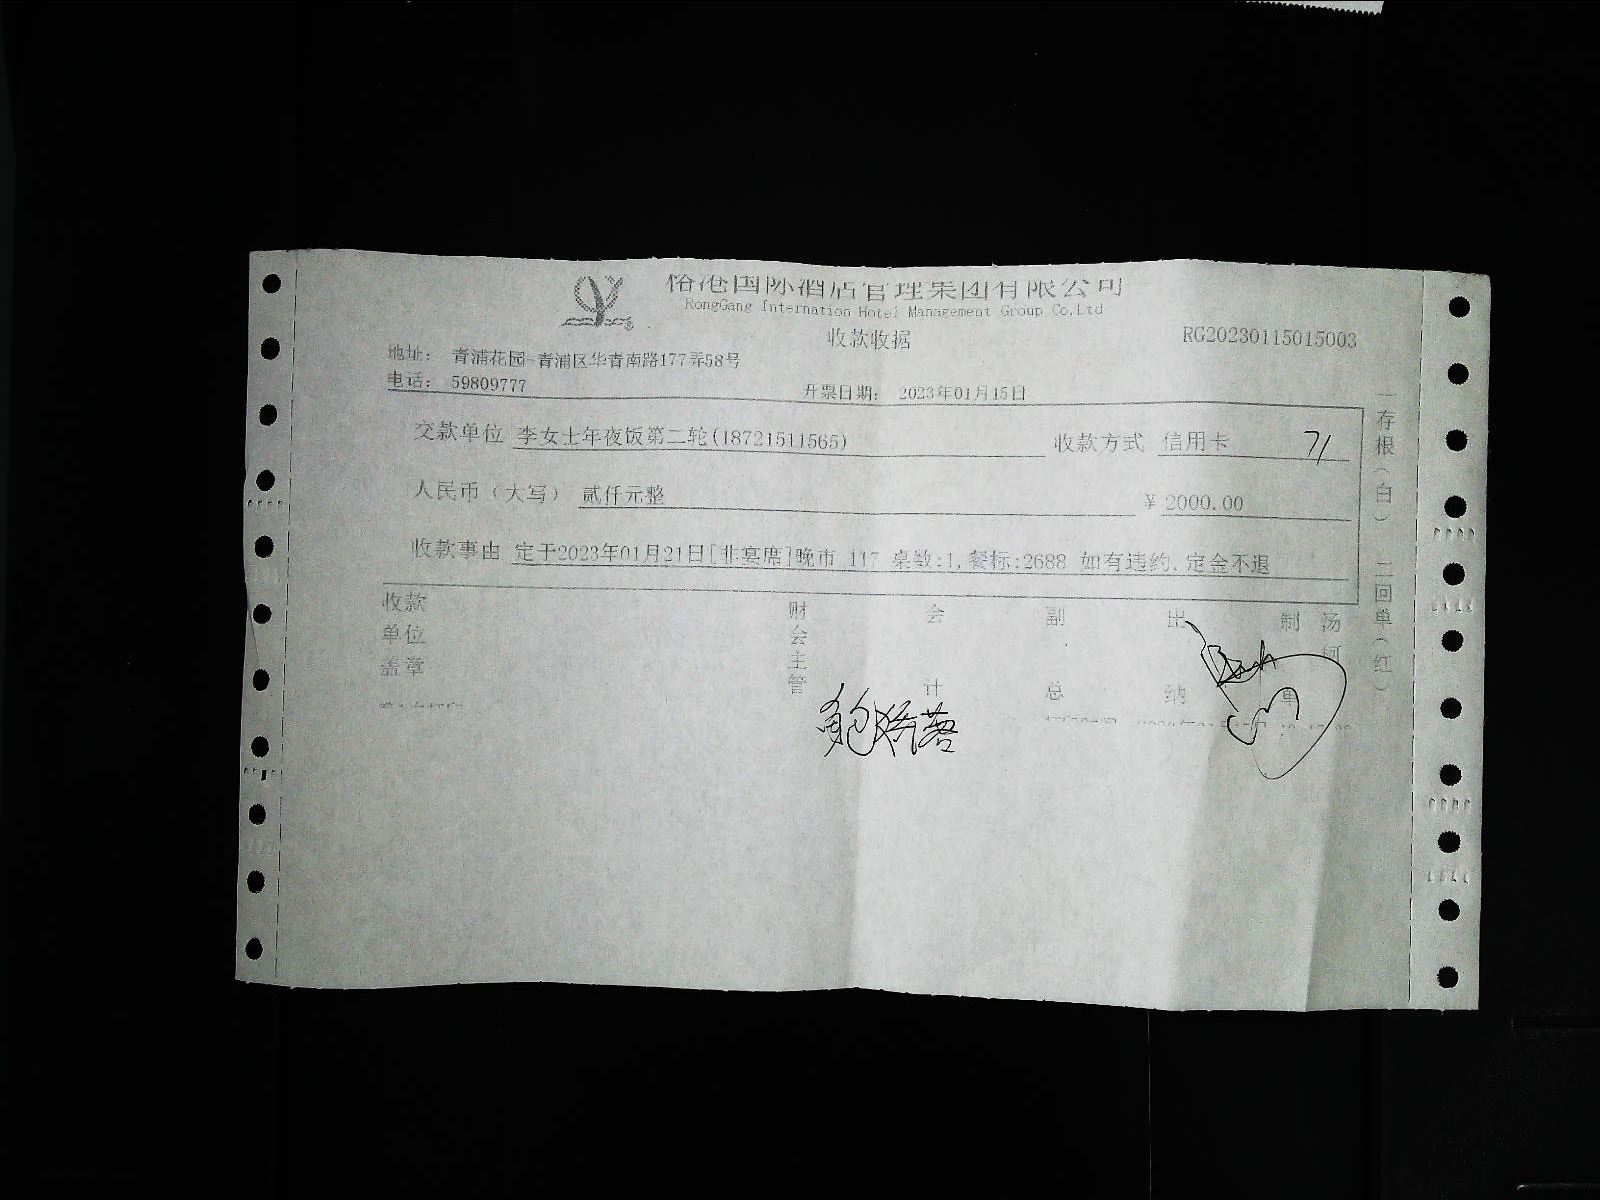 国际酒店管理集团有限公司
RongGang Internation Hotel Management Group Co,Ltd
收款收据 RG20230115015003
地址： 青浦花园-青浦区华青南路177弄58号
电话： 59809777 开票日期： 2023年01月15日
交款单位 李女士年夜饭第二轮(18721511565) 收款方式 信用卡 71
人民币（大写） 贰仟元整 ￥ 2000.00
收款事由 定于2023年01月21日[非宴席]晚市 117 桌数:1,餐标:2688 如有违约,定金不退
收款单位盖章 财会主管 会计 副总 出纳 制单 汤
一存根（白） 二回单（红）